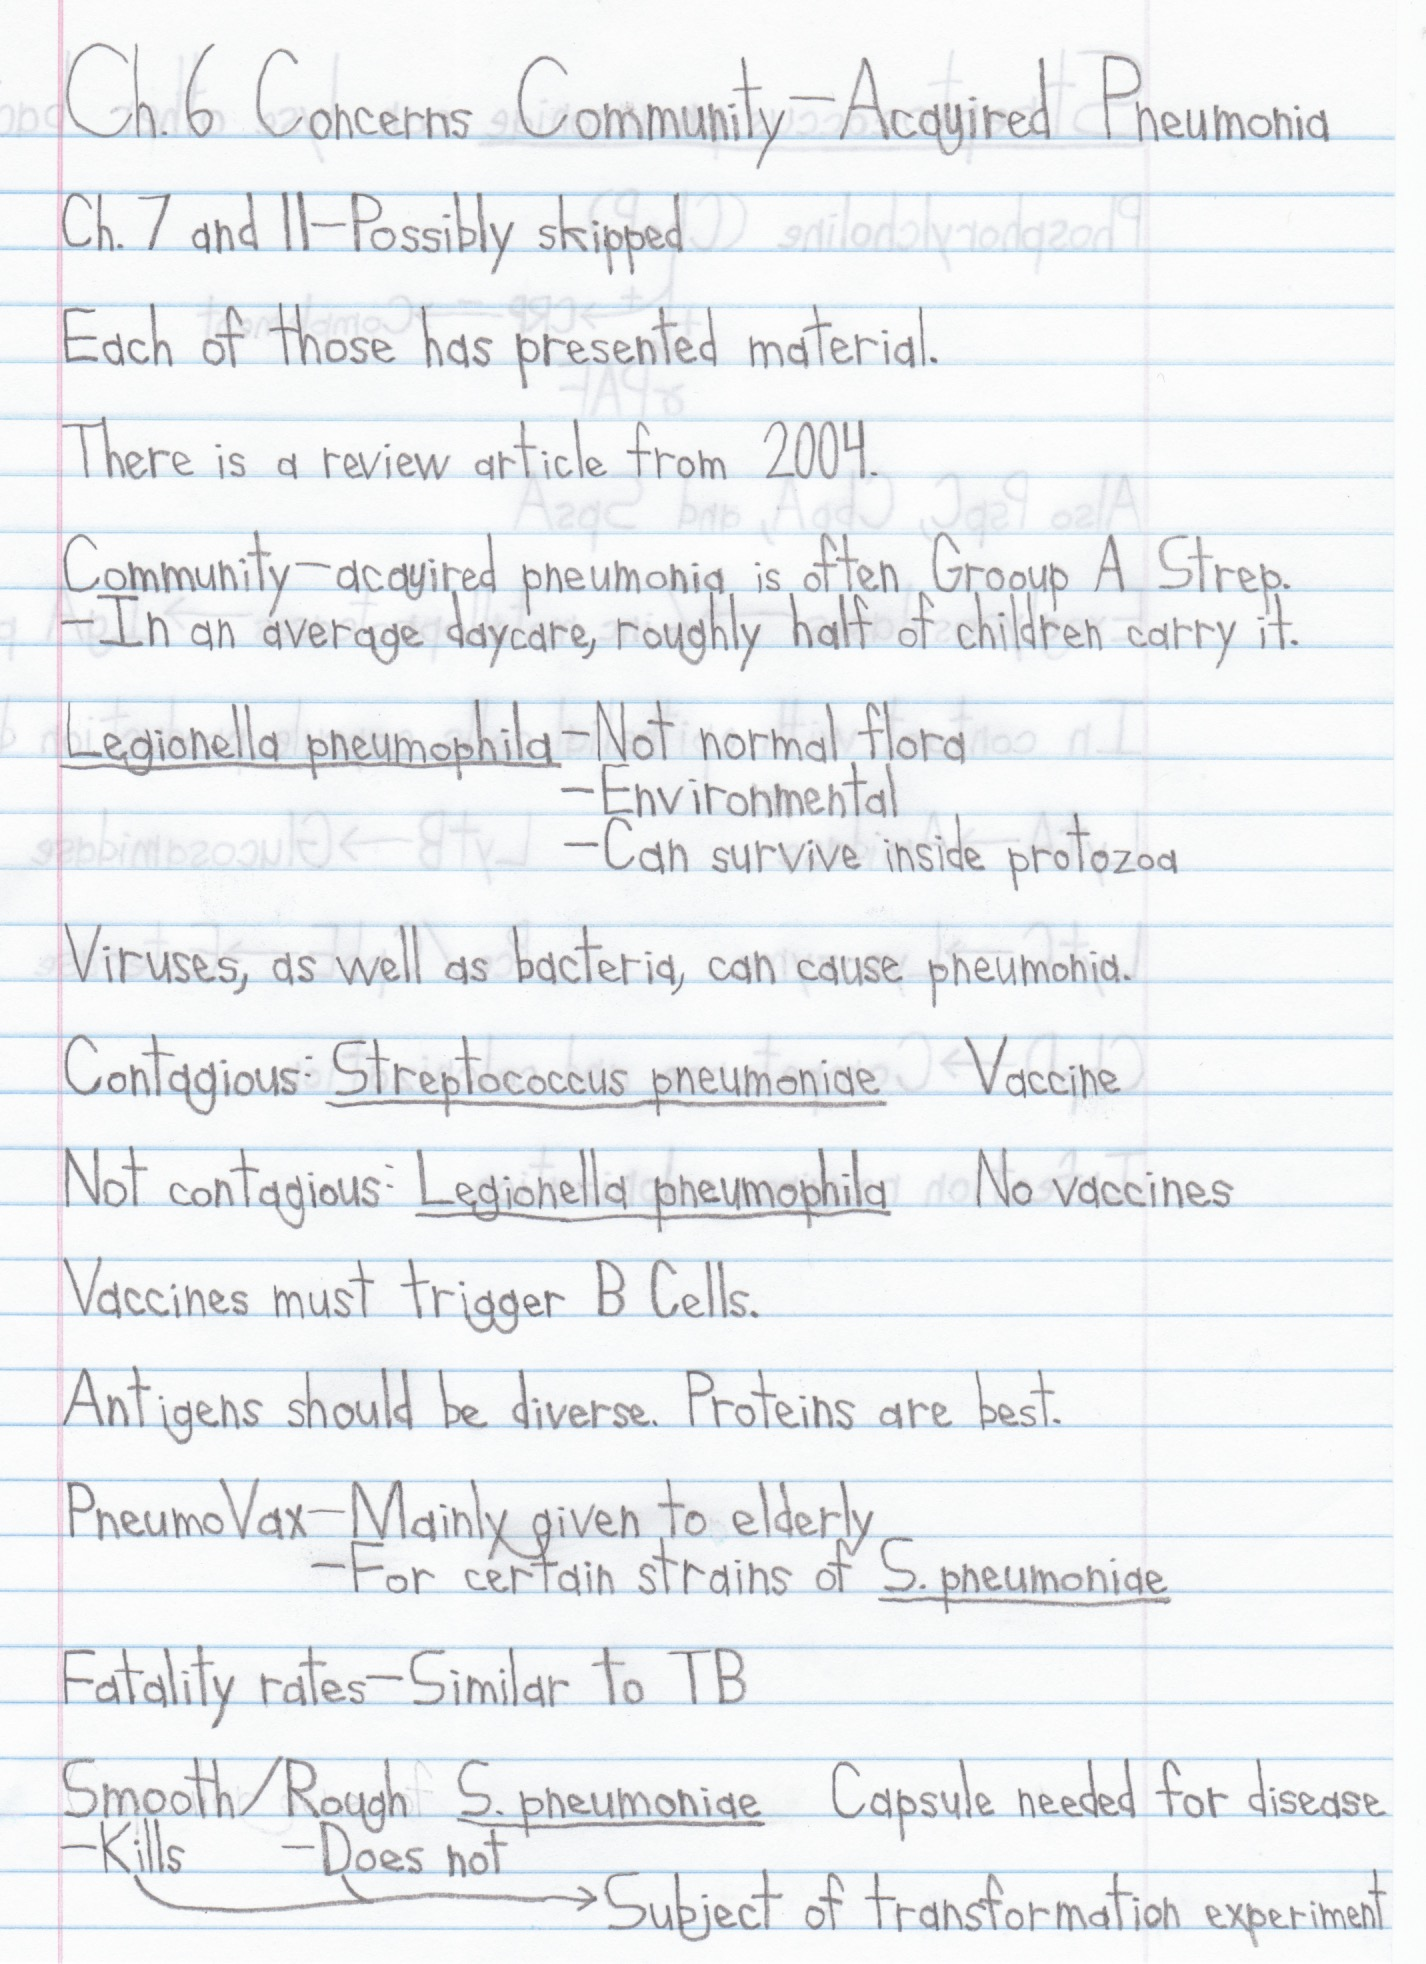 Ch. 6 Concerns Community-Acquired Pneumonia
Ch. 7 and 11-Possibly skipped
Each of those has presented material.
There is a review article from 2004.
Community-acquired pneumonia is often Grooup A Strep.
-In an average daycare, roughly half of children carry it.
Legionella pneumophila-Not normal flora
-Environmental
-Can survive inside protozoa
Viruses, as well as bacteria, can cause pneumonia.
Contagious: Streptococcus pneumoniae Vaccine
Not contagious: Legionella pneumophila No vaccines
Vaccines must trigger B Cells.
Antigens should be diverse. Proteins are best.
PneumoVax-Mainly given to elderly
-For certain strains of S. pneumoniae
Fatality rates-Similar to TB
Smooth/Rough S. pneumoniae Capsule needed for disease
-Kills -Does not
→Subject of transformation experiment